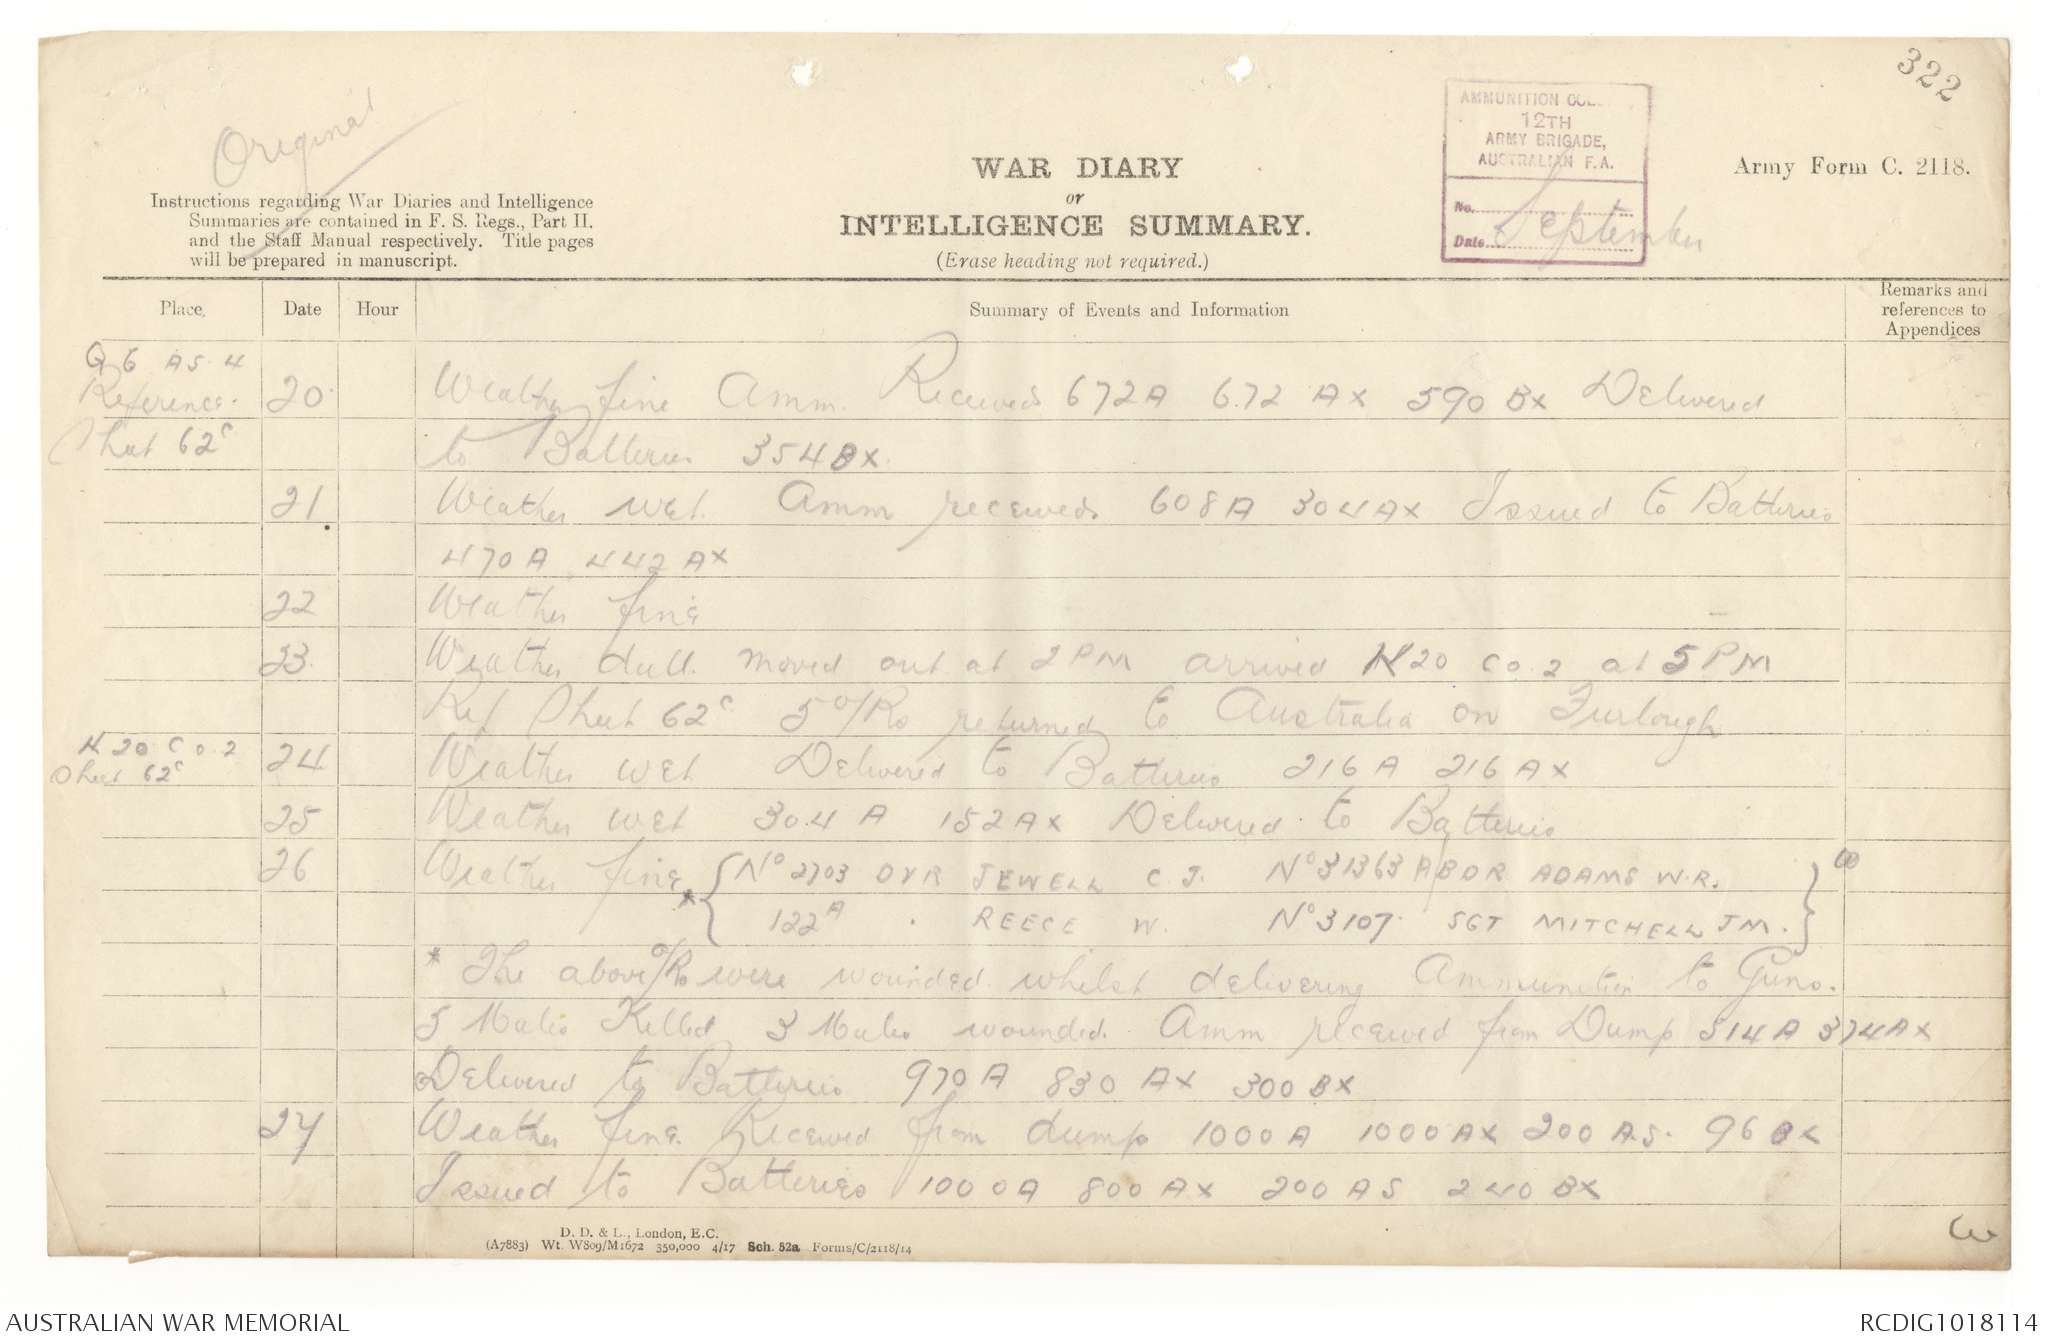 322
Original
AMMUNITION COL
12TH
ARMY BRIGADE,
AUSTRALIAN F.A.
No.
Date September
Instructions regarding War Diaries and Intelligence
Summaries are contained in F. S. Regs., Part II.
and the Staff Manual respectively. Title pages
will be prepared in manuscript.
WAR DIARY
or
INTELLIGENCE SUMMARY.
(Erase heading not required.)
Army Form C. 2118.
Place. Date Hour Summary of Events and Information Remarks and references to Appendices
Q 6 A 5.4
Reference. 20. Weather fine Amm. Received 672A 672 AX 590 BX Delivered
Sheet 62c to Batteries 354 BX.
21 Weather wet. Amm received 608A 304AX Issued to Batteries
470A 442 AX
22 Weather fine
23. Weather dull. moved out at 2PM arrived K20 c 0.2 at 5PM
Ref Sheet 62c 5 O/Rs returned to Australia on Furlough
K 20 c 0.2 24 Weather wet Delivered to Batteries 216A 216AX
Sheet 62c
25 Weather wet 304 A 152AX Delivered to Batteries
26 Weather fine * { No 2703 DVR JEWELL C. J. No 31363 ABDR ADAMS W.R. }
122A " REECE W. No 3107. SGT MITCHELL J M.
* The above O/Rs were wounded whilst delivering Ammunition to Guns.
5 Mules Killed 3 Mules wounded. Amm received from Dump 514A 374AX
Delivered to Batteries 970A 830 AX 300 BX
27 Weather fine. Received from dump 1000A 1000AX 200 A.S. 96 BX
Issued to Batteries 1000A 800AX 200 AS 240 BX
D. D. & L., London, E.C.
(A7883) Wt. W809/M1672 350,000 4/17 Sch. 52a Forms/C/2118/14
AUSTRALIAN WAR MEMORIAL
RCDIG1018114